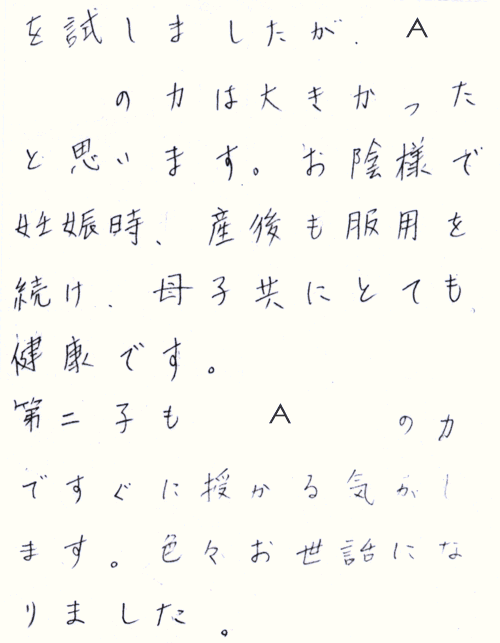 を試しましたが、A
の力は大きかった
と思います。お陰様で
妊娠時、産後も服用を
続け、母子共にとても、
健康です。
第二子も A の力
ですぐに授かる気がし
ます。色々お世話にな
りました。